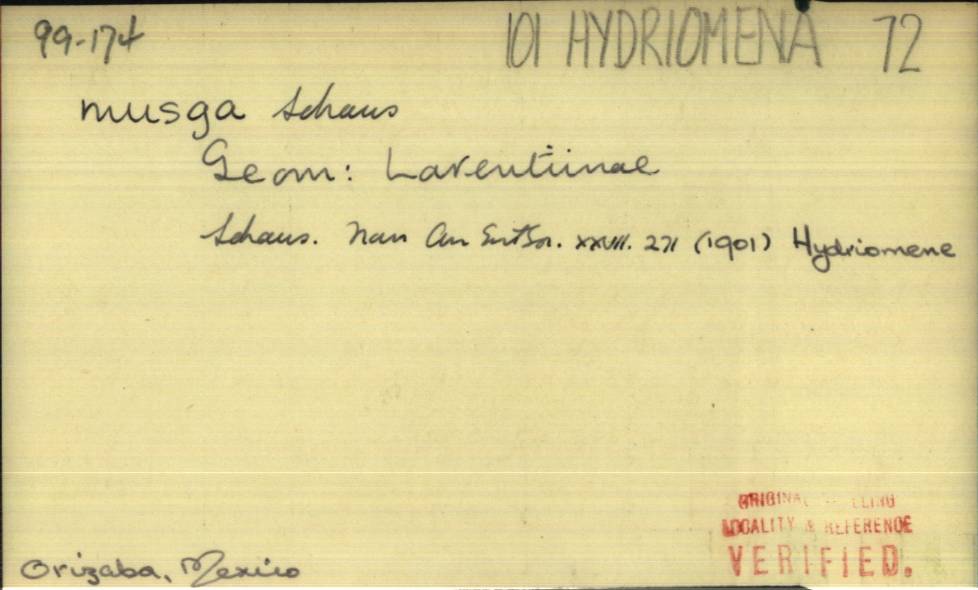 99-174 101 HYDRIOMENA 72
musga Schaus
Geom: Larentiinae
Schaus. Tran Am Ent Soc. XXVII. 271 (1901) Hydriomene
ORIGINAL SPELLING
LOCALITY & REFERENCE
VERIFIED.
Orizaba, Mexico